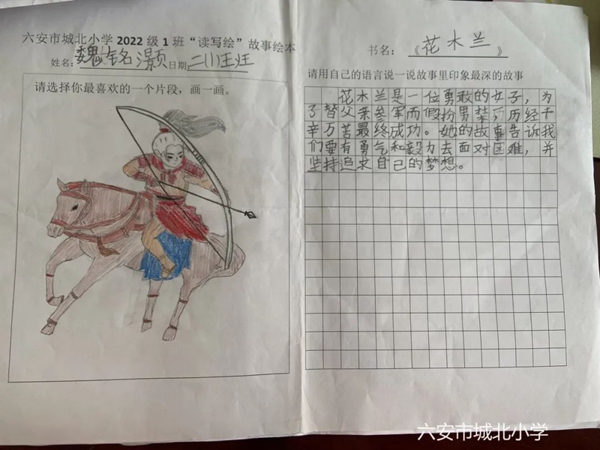 六安市城北小学 2022 级 1 班“读写绘”故事绘本
姓名: 魏铭灏 日期:
请选择你最喜欢的一个片段，画一画。
书名: 《花木兰》
请用自己的语言说一说故事里印象最深的故事
花木兰是一位勇敢的女子，为
了替父亲参军而假扮男装，历经千
辛万苦最终成功。她的故事告诉我
们要有勇气和毅力去面对困难，并
坚持追求自己的梦想。
六安市城北小学